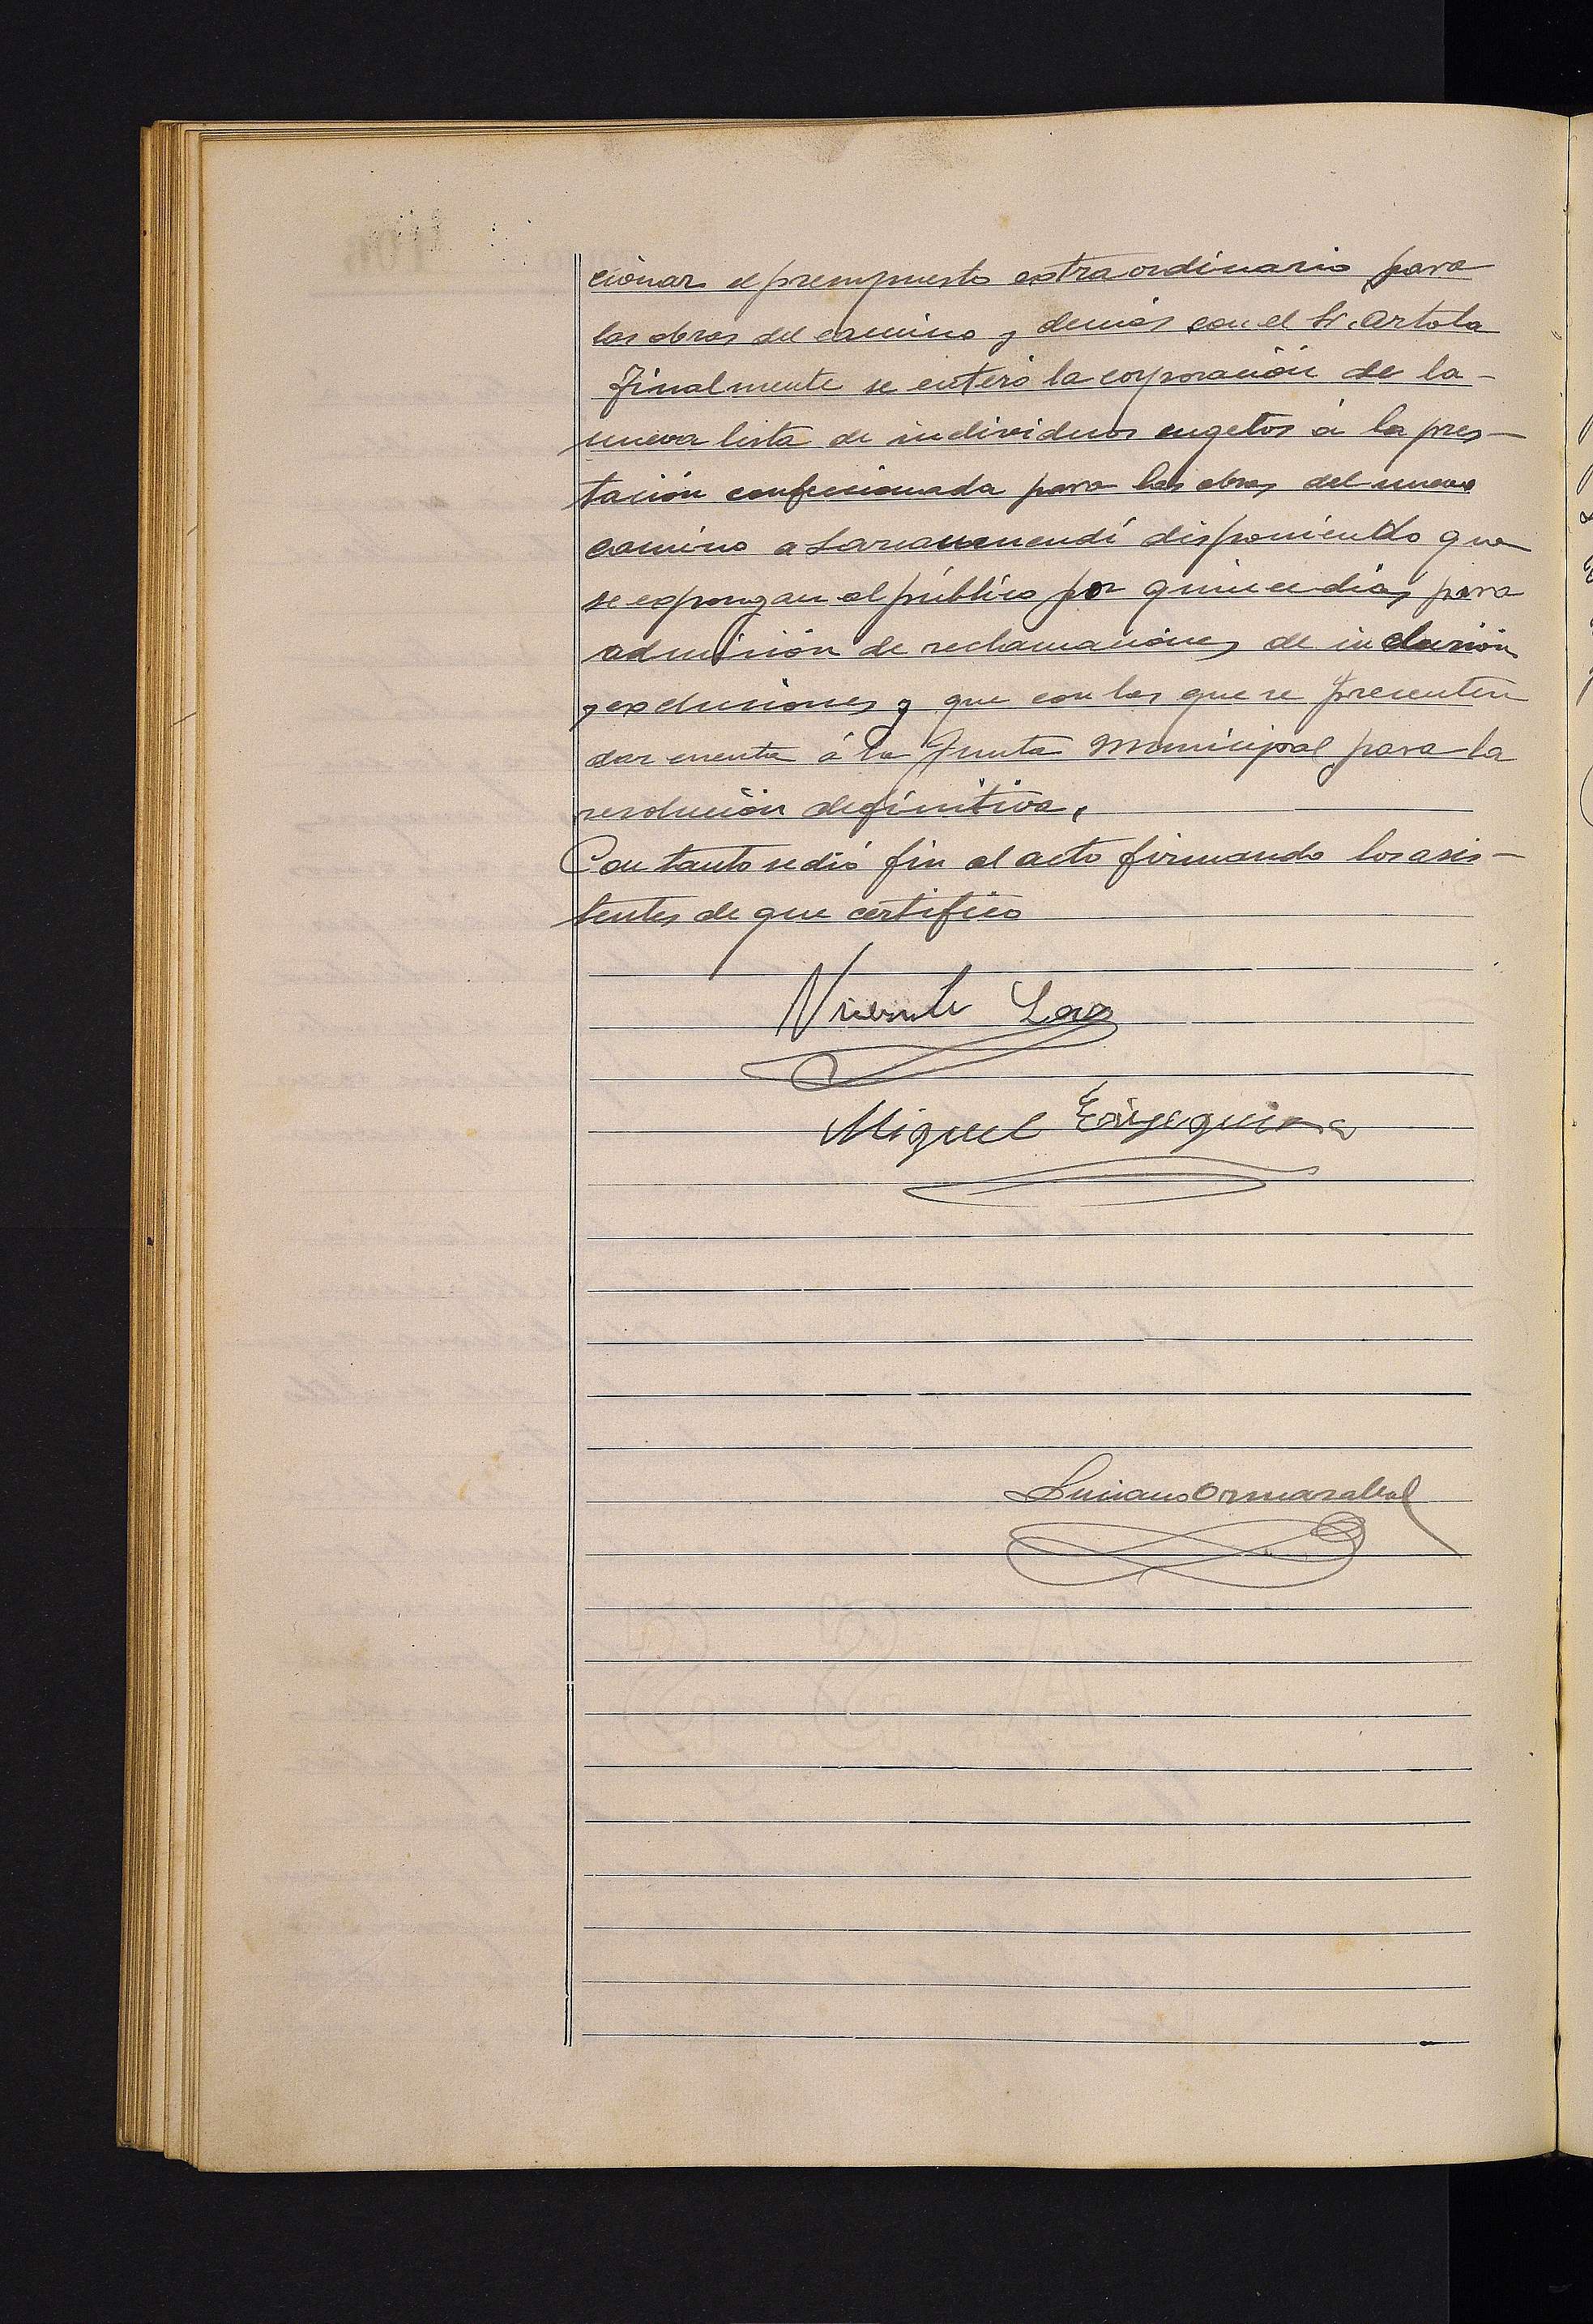 cionar el presupuesto extraordinario para
las obras del camino y demás con el Sr. Artola
Finalmente se enteró la corporación de la-
nueva lista de individuos sugetos á la pres-
tación confeccionada para las obras del nuevo
camino a disponiendo que
se expongan al público por quince dias, para
admisión de reclamaciones de inclusión
y exclusiones y que con las que se presenten
dar cuenta á la Junta Municipal para la
resolución definitiva.
Con tanto se dió fin al acto firmando los asis-
tentes de que certifico
Vicente
Miguel
Luciano Ormazabal